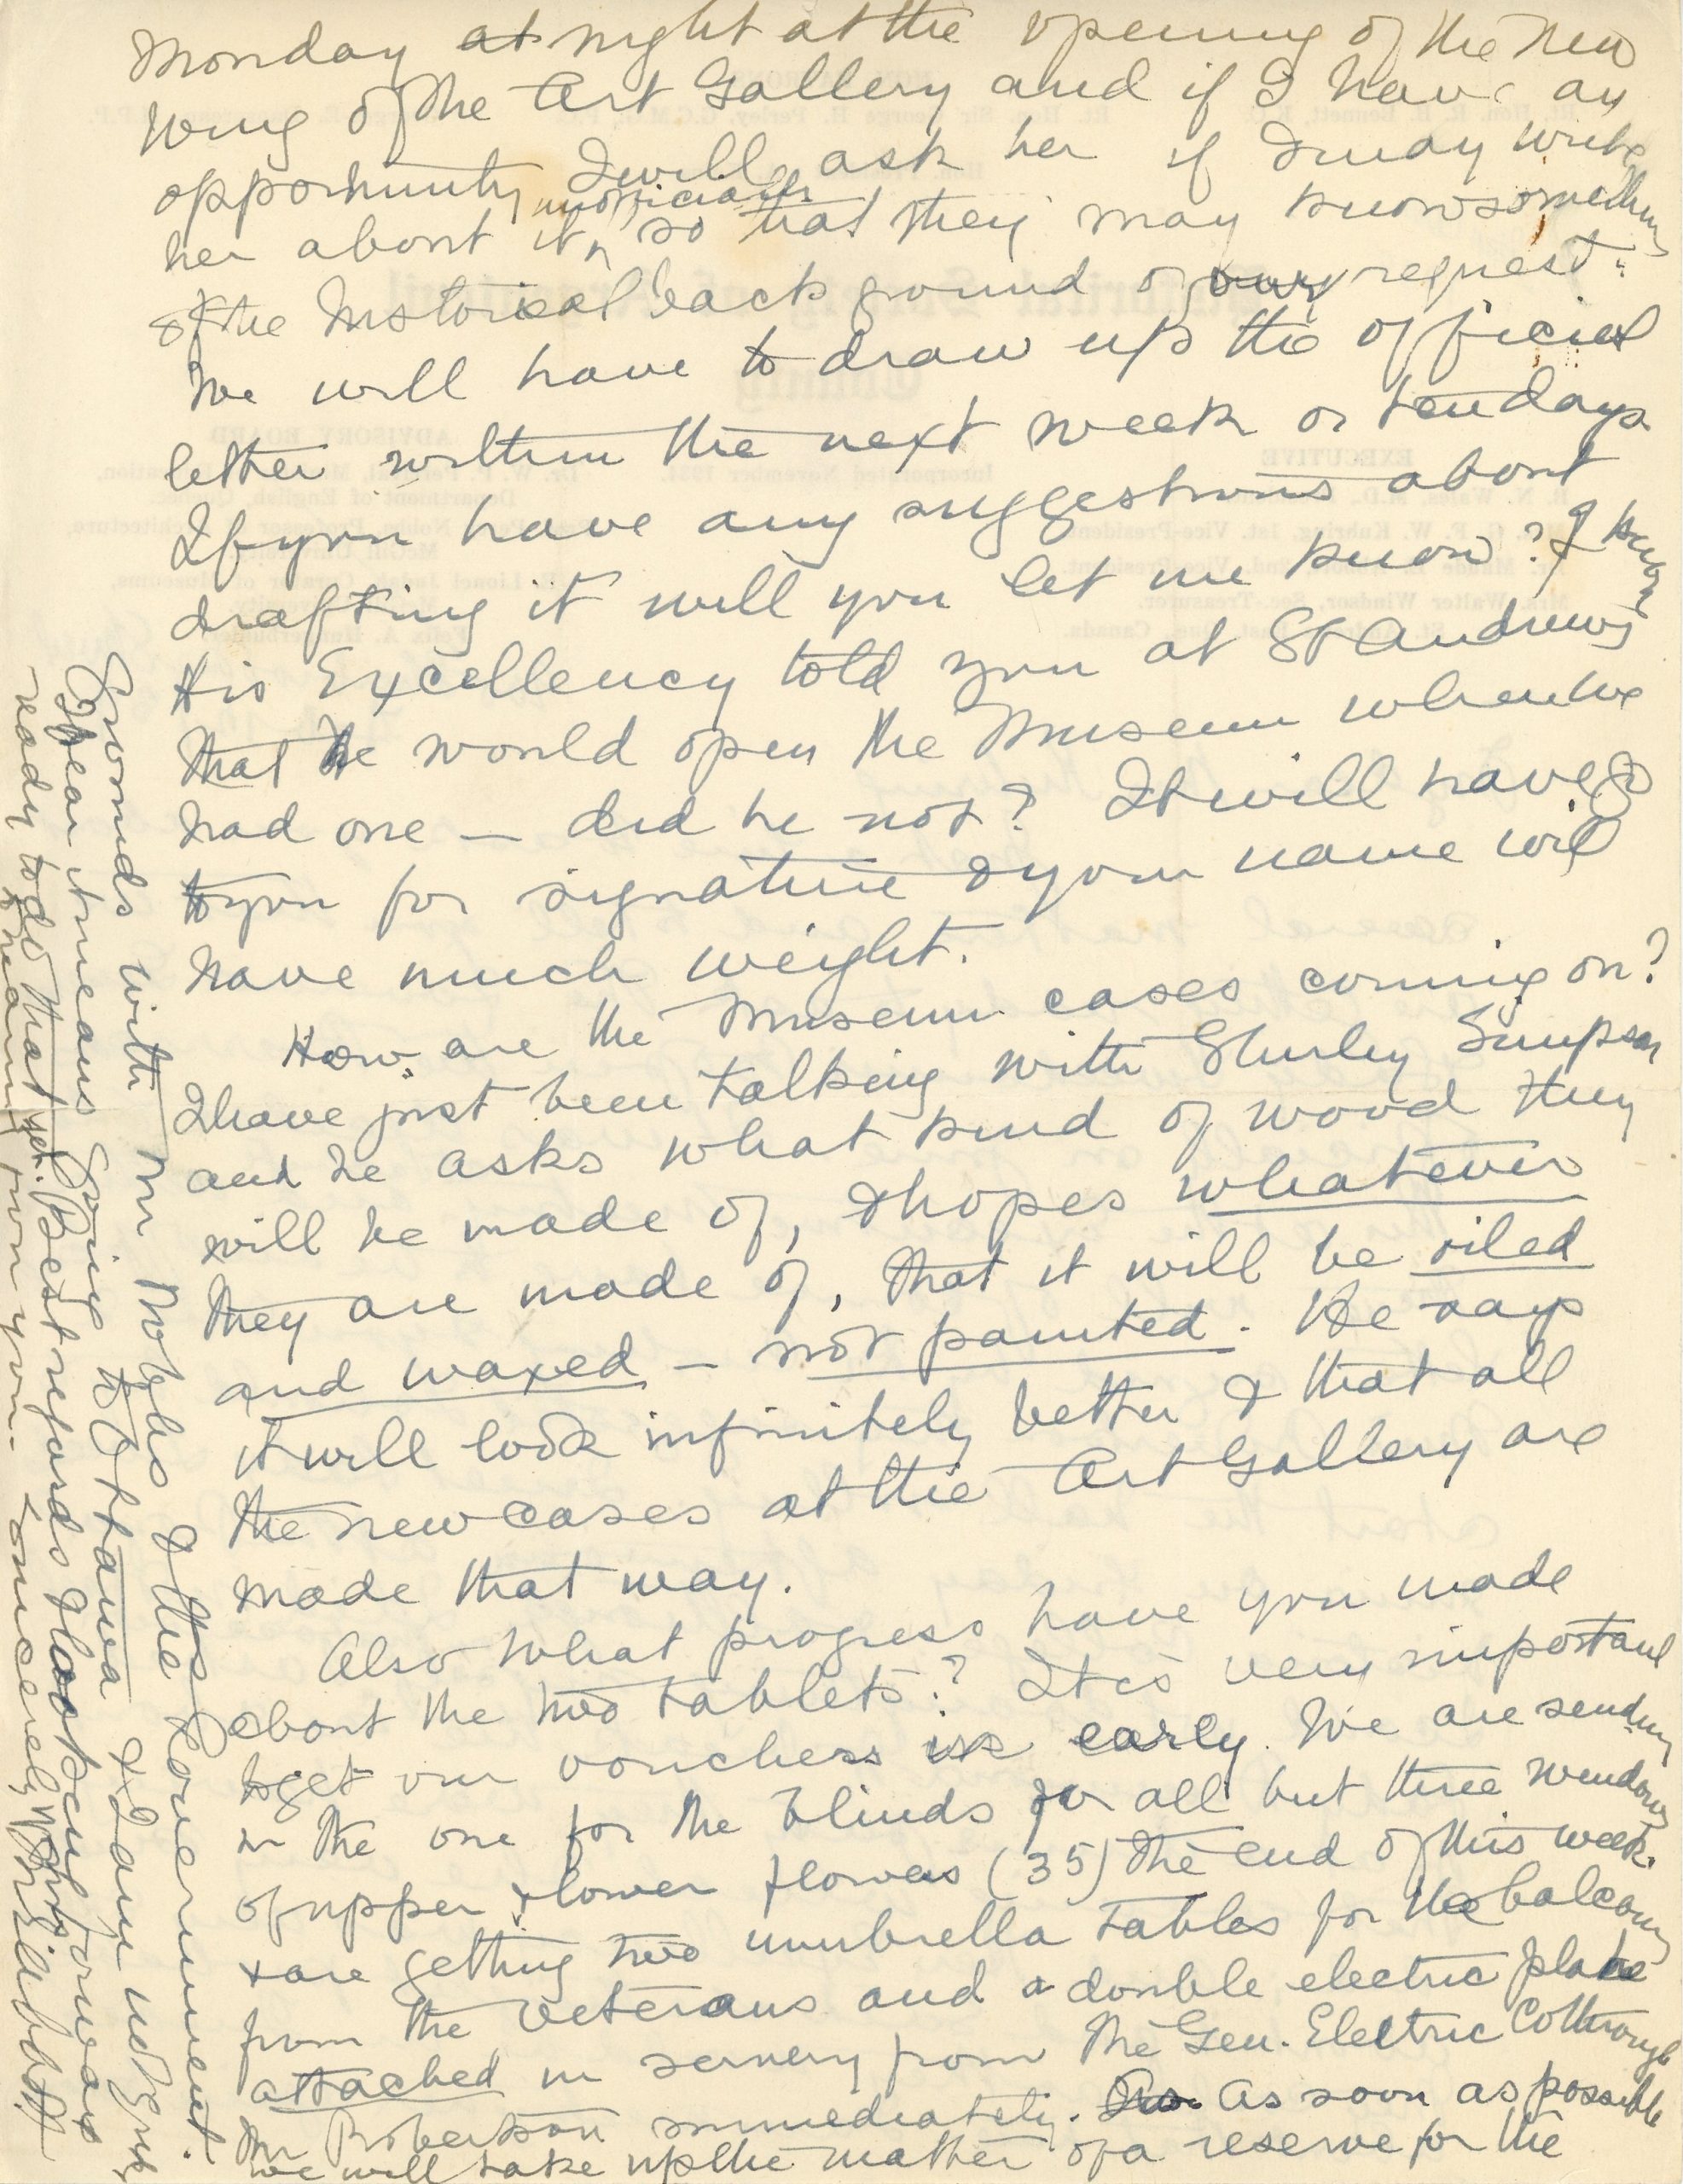 Monday at night at the opening of the new
wing of the Art Gallery and if I have an
opportunity I will ask her if I may write
her about it, so that they may know something
of the historical back ground of our request.
We will have to draw up the official
letter within the next week or ten days
If you have any suggestions about
drafting it will you let me know? I know
His Excellency told you at St Andrews
that he would open the Museum when we
had one — did he not? It will have to
to you for signature & your name will
have much weight.
How are the Museum cases coming on?
I have just been talking with Shirley Simpson
and he asks what kind of wood they
will be made of, & hopes whatever
they are made of, that it will be oiled
and waxed — not painted. He says
it will look infinitely better & that all
the new cases at the Art Gallery are
made that way.
Also what progress have you made
about the two tablets? It is very important
to get our vouchers in early. We are sending
in the one for the blinds for all but three windows
of upper & lower flowers (35) the end of this week.
& are getting two umbrella tables for the balcony
from the Veterans and a double electric plate
attached in servery from the Gen. Electric Co through
Mr Robertson immediately. As soon as possible
we will take up the matter of a reserve for the
Grounds with Mr Nobbs & the Government.
I fear it means going to Ottawa & I am not quite
ready to do that yet. Best regards & looking forward
to hearing from you. Sincerely